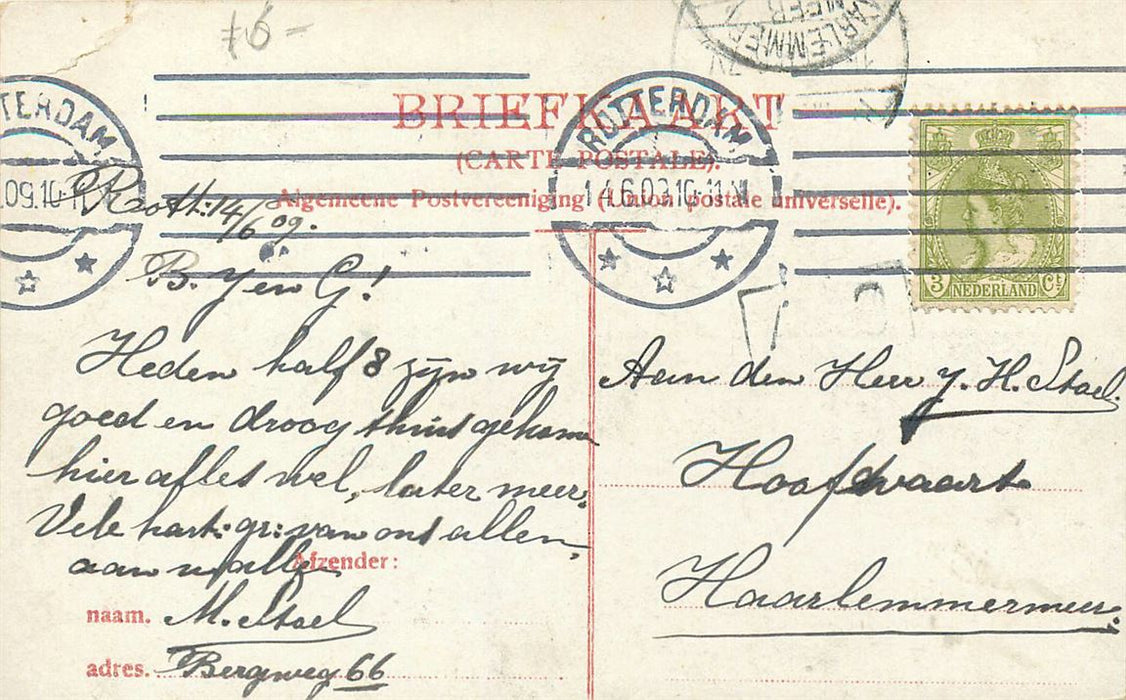 ≠6-
HAARLEMMERMEER
BRIEFKAART
(CARTE POSTALE).
Algemeene Postvereeniging (Union postale universelle).
ROTTERDAM
.09.10-11
ROTTERDAM
14.6.09.10-11
3 NEDERLAND Ct
Rott: 14/6 09.
B. J en G!
Heden half 8 zijn wij
goed en droog thuis gekomen
hier alles wel, later meer.
Vele hart: gr: van ons allen,
aan u alle
Afzender:
naam. M. Stoel
adres. Bergweg 66
Aan den Heer J. H. Stoel.
Hoofdvaart
Haarlemmermeer.